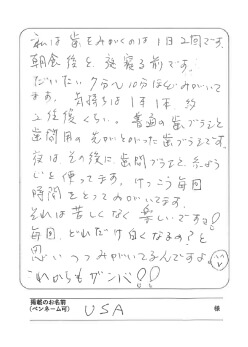 私は歯をみがくのは1日2回です。
朝食後と夜寝る前です。
だいたい7分〜10分ほどみがいてき
ます。気持ちは1本1本
2往復くらい。普通の歯ブラシと
歯間用の先がとがった歯ブラシです。
夜はその後に歯間ブラシと糸よう
じを使ってます。けっこう毎回
時間をとってみがいてます。
それは苦しくなく楽しいですよ!
毎回、どれだけ白くなるの?と
思いつつみがいてるんですよ。
これからもガンバ!!
掲載のお名前
(ペンネーム可) USA 様